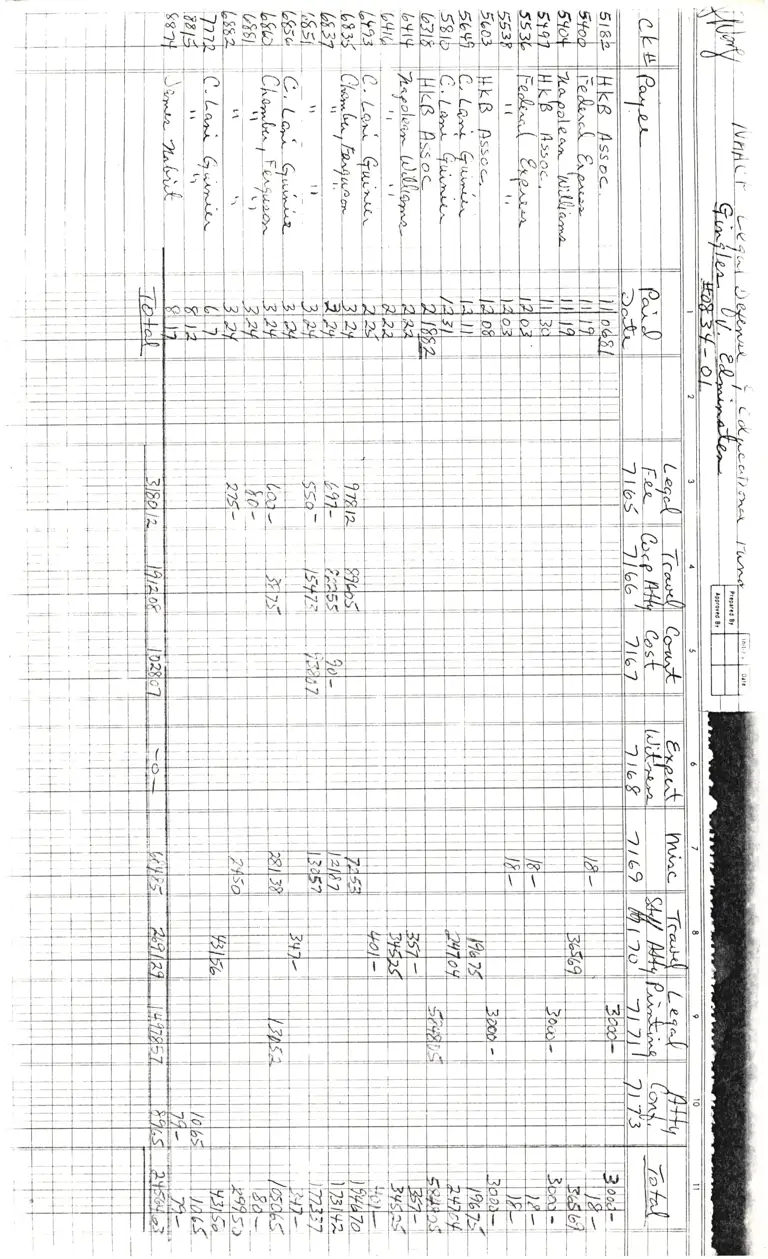 NAACP Legal Defense & Educational Fund
Gingles v. Edminsten
#0834-01
Prepared By
Approved By
Initials Date
1 2 3 4 5 6 7 8 9 10 11
CK# Payee Paid Date Legal Fee 7165 Travel Coop Atty 7166 Court Cost 7167 Expert Witness 7168 Misc 7169 Travel Stff Atty 7170 Legal Printing 7171 Atty Conf. 7173 Total
5182 HKB Assoc. 11 06 81 3000- 3000-
5400 Federal Express 11 19 18- 18-
5404 Napolean Williams 11 19 36569 36569
5497 HKB Assoc. 11 30 3000- 3000-
5536 Federal Express 12 03 18- 18-
5538 " 12 03 18- 18-
5603 HKB Assoc. 12 08 3000- 3000-
5649 C. Lani Guinier 12 11 19675 19675
5810 C. Lani Guinier 12 31 24704 24704
6318 HKB Assoc 2 18 82
6414 Napolean Williams 2 22 357- 357-
6416 " 2 22 34525 34525
6493 C. Lani Guinier 2 25 401- 401-
6835 Chamber, Ferguson 3 24 97812 89605 7253 194670
6837 " 3 24 697- 90- 12187 173142
6851 " 3 24 550- 15473 93807 13057 177337
6856 C. Lani Guinier 3 24 347- 347-
6860 Chamber, Ferguson 3 24 600- 3875 28138 13052 105065
6881 " 3 24 80- 80-
6882 " 3 24 275- 2450 29950
7772 C. Lani Guinier 6 7 43150
8815 " 8 12 1065 1065
8874 James Nabrit 8 17 79- 79-
Total 318012 191208 102807 -0- 269129 1497857 8965